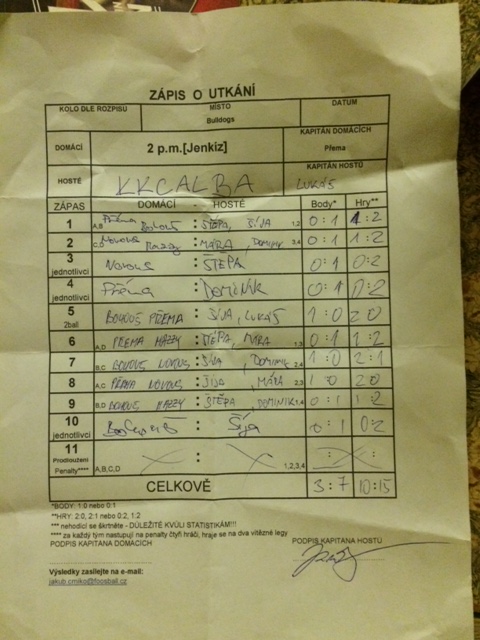 ZÁPIS O UTKÁNÍ
KOLO DLE ROZPISU MÍSTO DATUM
Bulldogs
DOMÁCÍ 2 p.m.[Jenkiz] KAPITÁN DOMÁCÍCH
Přema
HOSTÉ KKCALBA KAPITÁN HOSTŮ
LUKÁŠ
ZÁPAS DOMÁCÍ - HOSTÉ Body* Hry**
1 A,B Přéma Bohouš : ŠTĚPA, ŠÍJA 1,2 0:1 1:2
2 C,D Novous Mazzy : MÁRA, DOMINIK 3,4 0:1 1:2
3 jednotlivci Novous : ŠTĚPA 0:1 0:2
4 jednotlivci Přéma : DOMINIK 0:1 0:2
5 2ball BOHOUS PŘEMA : ŠÍJA, LUKÁŠ 1:0 2:0
6 A,D PŘEMA MAZZY : ŠTĚPA, MÁRA 1,3 0:1 1:2
7 B,C BOHOUS NOVOUS : ŠÍJA, DOMINIK 2,4 1:0 2:1
8 A,C PŘEMA NOVOUS : ŠÍJA, MÁRA 2,3 1:0 2:0
9 B,D BOHOUS MAZZY : ŠTĚPA, DOMINIK 1,4 0:1 1:2
10 jednotlivci : Šíja 0:1 0:2
11 Prodloužení Penalty**** A,B,C,D : 1,2,3,4
CELKOVĚ 3:7 10:15
*BODY: 1:0 nebo 0:1
**HRY: 2:0, 2:1 nebo 0:2, 1:2
*** nehodící se škrtněte - DŮLEŽITÉ KVŮLI STATISTIKÁM!!!
**** za každý tým nastupují na penalty čtyři hráči, hraje se na dva vítězné legy
PODPIS KAPITÁNA DOMÁCÍCH PODPIS KAPITÁNA HOSTŮ
Výsledky zasílejte na e-mail:
jakub.crniko@foosball.cz